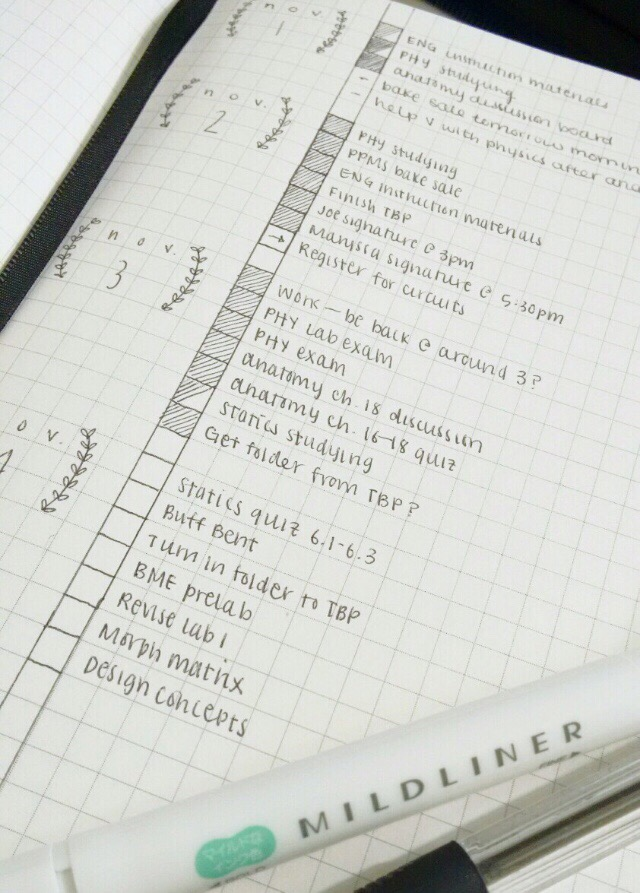 nov.
1
ENG instruction materials
PHY studying
anatomy discussion board
bake sale tomorrow mornin
help v with physics after
nov.
2
PHY studying
PPMS bake sale
ENG instruction materials
Finish TBP
Joe signature @ 3pm
Marissa signature @ 5:30pm
Register for circuits
nov.
3
Work — be back @ around 3?
PHY Lab exam
PHY exam
anatomy ch. 18 discussion
anatomy ch. 16-18 quiz
statics studying
Get folder from TBP?
ov.
statics quiz 6.1-6.3
Buff Bent
Turn in folder to TBP
BME prelab
Revise lab 1
Morph matrix
Design concepts
MILDLINER
マイルドな
インク色